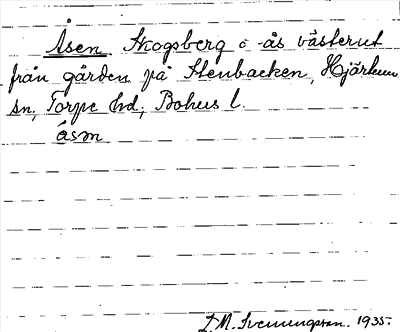 Åsen Skogsberg o ås västerut
från gården på Stenbacken, Hjärtum
sn, Torpe hd; Bohus l.
åsm
D.M. Svenungsson. 1935.